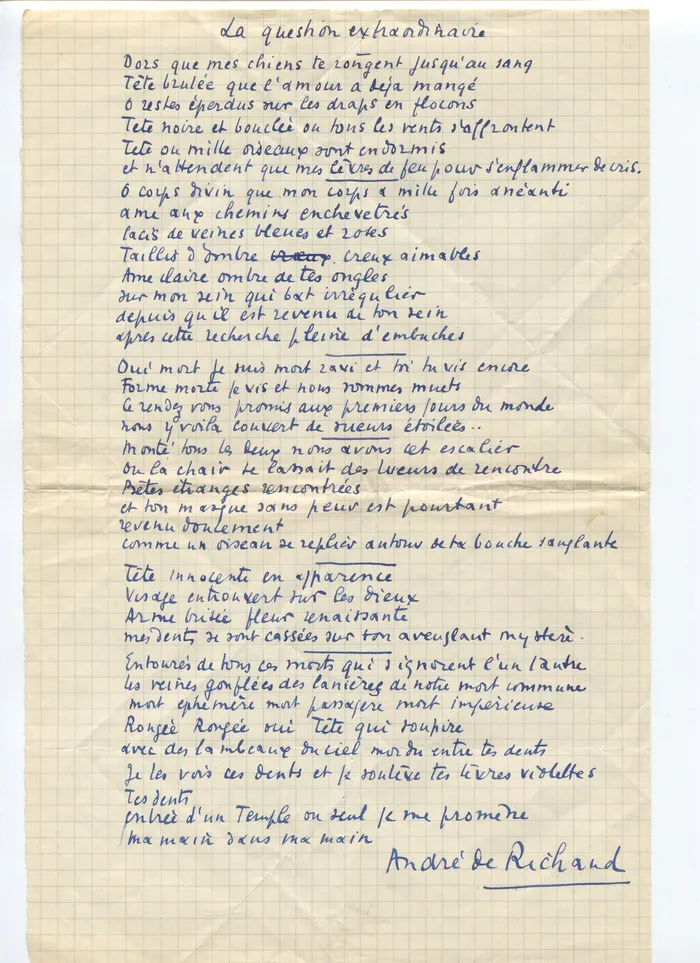 La question extraordinaire
Dors que mes chiens te rongent jusqu'au sang
Tête brulée que l'amour a déja mangé
O restes éperdus sur les draps en flocons
Tete noire et bouclée ou tous les vents s'affrontent
Tete ou mille oiseaux sont endormis
et n'attendent que mes lèvres de feu pour s'enflammer de cris.
O corps divin que mon corps a mille fois anéanti
ame aux chemins enchevetrés
lacis de veines bleues et roses
Taillis d'ombre creux aimables
Ame claire ombre de tes ongles
sur mon sein qui bat irrégulier
depuis qu'il est revenu de ton sein
apres cette recherche pleine d'embuches
Oui mort je suis mort ravi et toi tu vis encore
Forme morte je vis et nous sommes muets
Ce rendez vous promis aux premiers jours du monde
nous y voila couvert de sueurs étoilées..
Monté tous les deux nous avons cet escalier
Ou la chair se laissait des lueurs de rencontre
Betes étranges rencontrées
et ton masque sans peur est pourtant
revenu doucement
comme un oiseau se replier autour de ta bouche sanglante
Tête innocente en apparence
Visage entrouvert sur les dieux
Arme brisée fleur renaissante
mes dents se sont cassées sur ton aveuglant mystere.
Entourés de tous ces morts qui s'ignorent l'un l'autre
les veines gonflées des lanières de notre mort commune
mort ephémère mort passagere mort impérieuse
Rongée Rongée oui Tête qui soupire
avec des lambeaux du ciel mordu entre tes dents
Je les vois ces dents et je soulève tes lèvres violettes
Tes dents
entrée d'un Temple ou seul je me promène
ma main dans ma main
André de Richaud